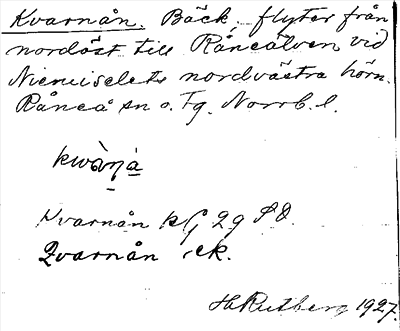 Kvarnån. Bäck flyter från
nordöst till Råneälven vid
Niemiselets nordvästra hörn.
Råneå sn o. Tg. Norrb. l.
Kvarnån kf 29
Qvarnån ek.
H Rutberg 1927.